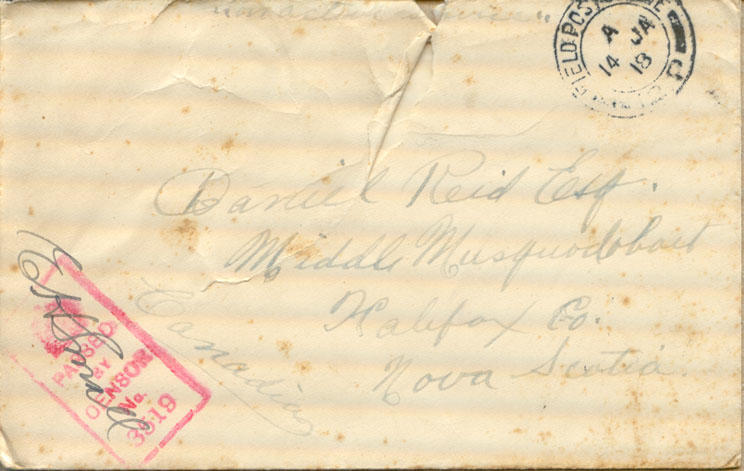 "on active service"
FIELD POST OFFICE
A
14 JA
18
Daniel Reid Esq.
Middle Musquodoboit
Halifax Co.
Nova Scotia
Canadia
PASSED
BY
CENSOR
No.
3519